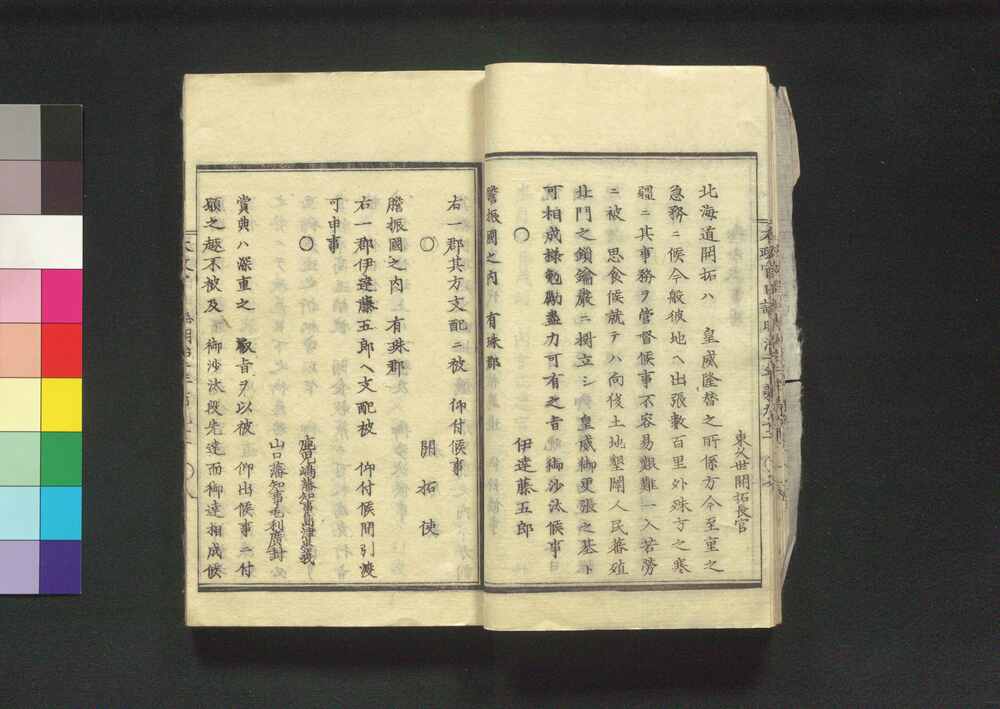 東久世開拓長官
北海道開拓ハ 皇威隆替之所係方今至重之
急務ニ候今般彼地ヘ出張數百里外殊方之寒
疆ニ其事務ヲ管督候事不容易艱難一入苦勞
ニ被 思食候就テハ向後土地墾闢人民蕃殖
北門之鎖鑰嚴ニ樹立シ 皇威御更張之基ト
可相成樣勉勵盡力可有之旨御沙汰候事
〇 伊達藤五郎
膽振國之内 有珠郡
右一郡其方支配ニ被 仰付候事
〇 開拓使
膽振國之内 有珠郡
右一郡伊達藤五郎ヘ支配被 仰付候間引渡
可申事
〇 鹿兒嶋藩知事島津忠義
山口藩知事毛利廣封
賞典ハ深重之 叡旨ヲ以被 仰出候事ニ付
願之趣不被及 御沙汰段先達而御達相成候